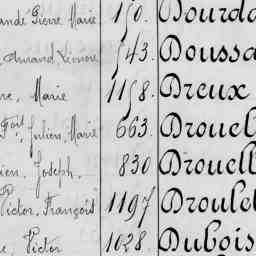 andé Pierre Marie 150. Dourda
Amand, Léonore 543. Doussa
re, Marie 1158. Dreux
Julien, Marie 663. Drouel
ien, Joseph. 830 Drouell
Victor, François 1197 Droulet
e, Victor 1028. Dubois